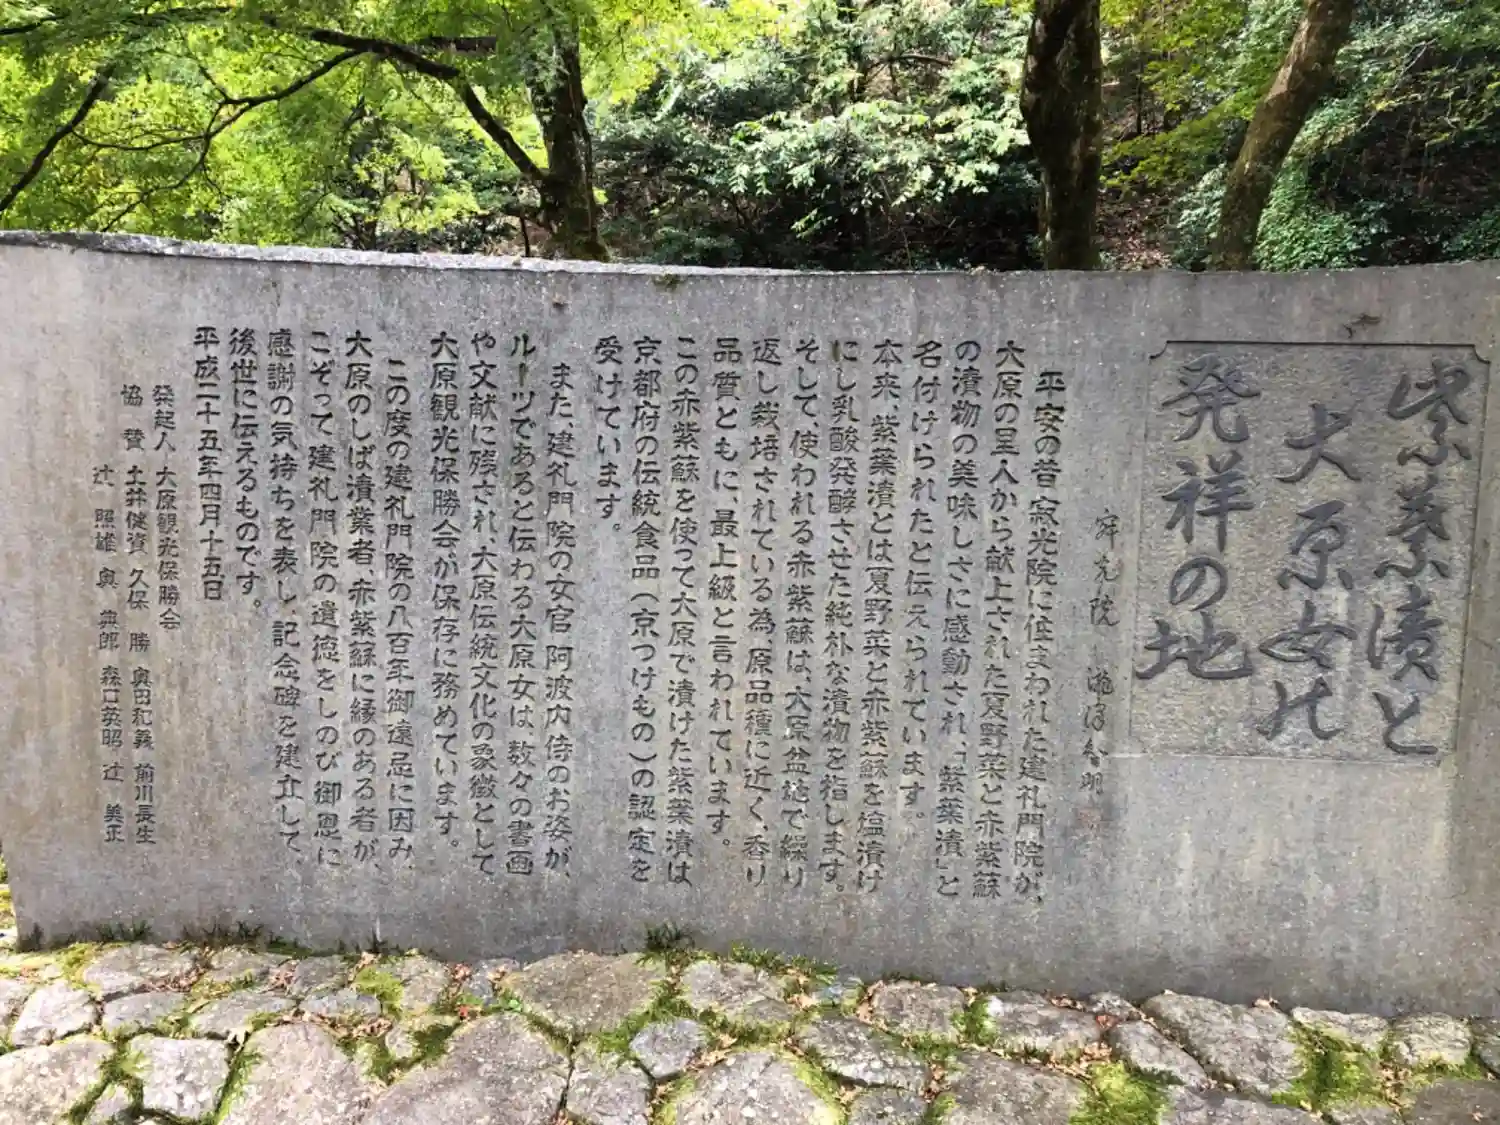 紫葉漬と
大原女の
発祥の地
寂光院 瀧澤智明
平安の昔寂光院に住まわれた建礼門院が、
大原の里人から献上された夏野菜と赤紫蘇
の漬物の美味しさに感動され、「紫葉漬」と
名付けられたと伝えられています。
本来、紫葉漬とは夏野菜と赤紫蘇を塩漬け
にし乳酸発酵させた純朴な漬物を指します。
そして、使われる赤紫蘇は、大原盆地で繰り
返し栽培されている為、原品種に近く、香り
品質ともに、最上級と言われています。
この赤紫蘇を使って大原で漬けた紫葉漬は、
京都府の伝統食品(京つけもの)の認定を
受けています。
また、建礼門院の女官阿波内侍のお姿が、
ルーツであると伝わる大原女は、数々の書画
や文献に残され、大原伝統文化の象徴として
大原観光保勝会が保存に務めています。
この度の建礼門院の八百年御遠忌に因み、
大原のしば漬業者、赤紫蘇に縁のある者が、
こぞって建礼門院の遺徳をしのび御恩に
感謝の気持ちを表し、記念碑を建立して、
後世に伝えるものです。
平成二十五年四月十五日
発起人 大原観光保勝会
協賛 土井健資 久保勝 奥田和義 前川長生
辻照雄 奥典郎 森口英昭 辻美正